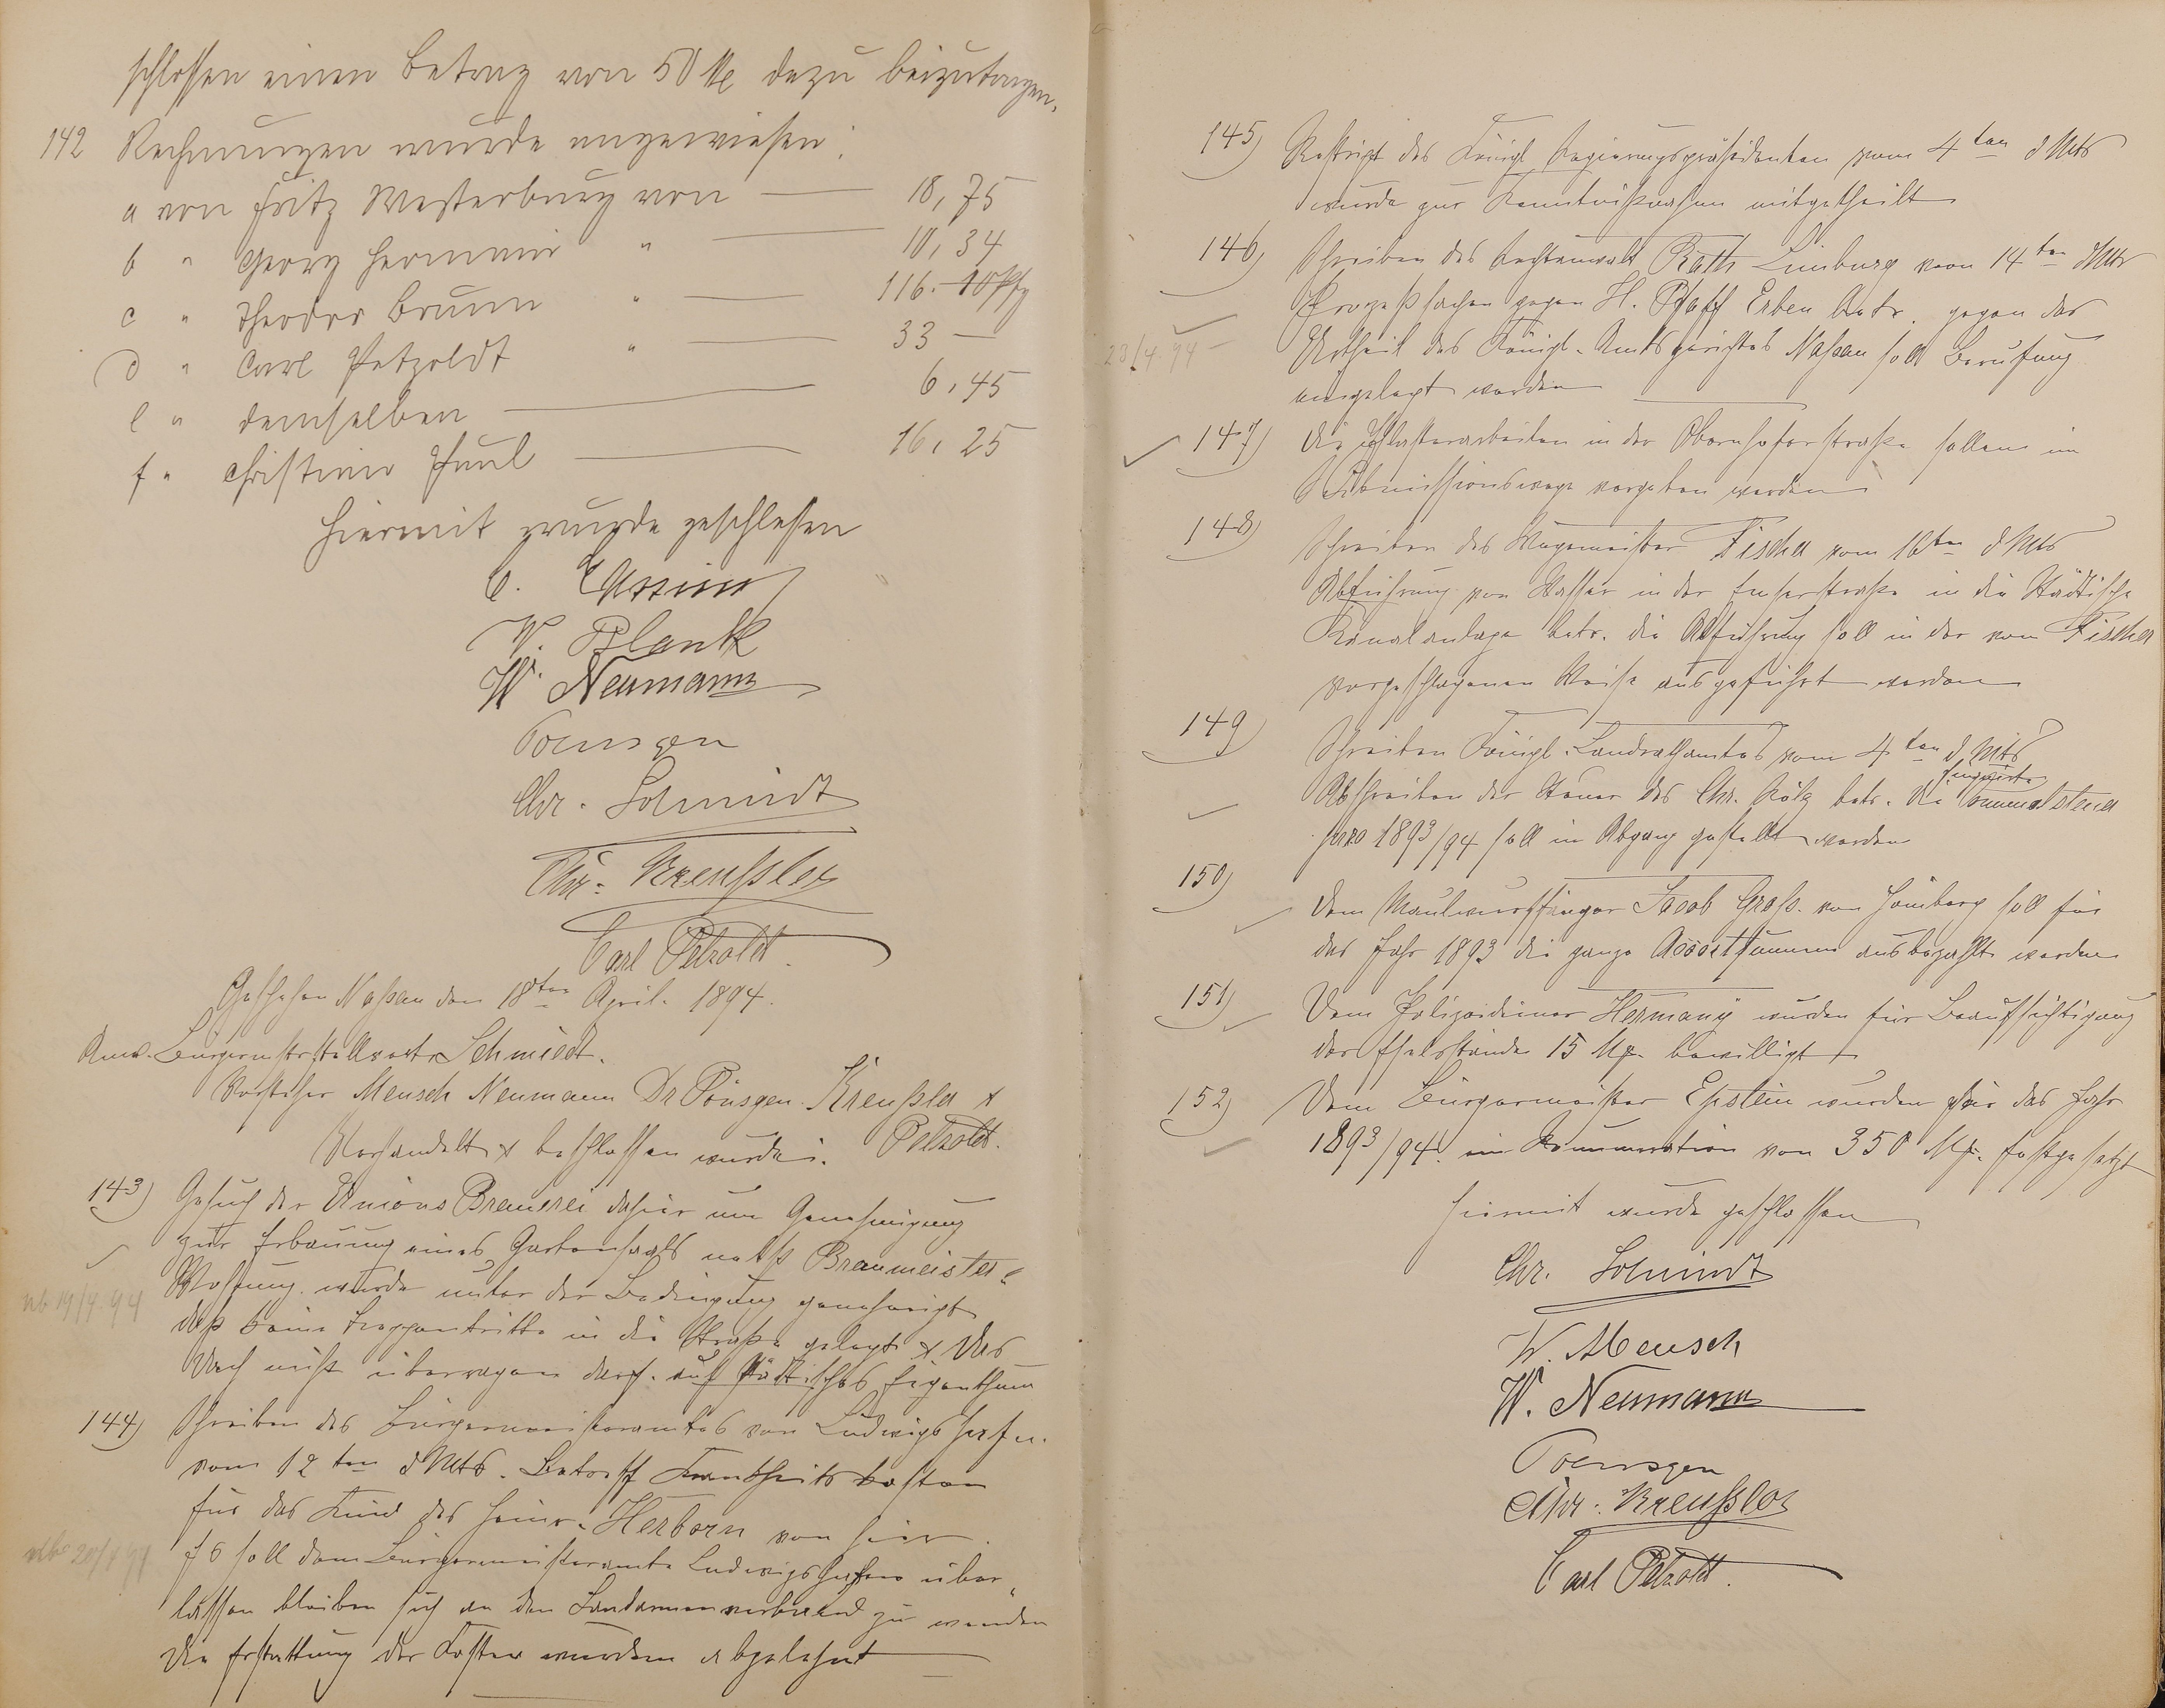 schlossen einen Betrag von 50 M dazu beizutragen.
142 Rechnungen wurde angewiesen:
a von Fritz Westerburg von — 18,75
b " Georg Hermann " — 10,34
c " Theodor Bruun " — 116.10 Pfg
d " Carl Petzoldt " — 33 —
e " demselben — 6,45
f " Christian Paul — 16,25
Hiermit wurde geschlossen
C.
W. Blank
W. Neumann
Poensgen
Chr. Schmidt
Chr. Kreussler
Carl Petzoldt.
Geschehen Nassau den 18ten April. 1894.
Anw. Bürgermstrstellvertr Schmidt.
Vorsteher Mensch Neumann Dr Pönsgen Kreußler &
Petzoldt.
Verhandelt & beschlossen wurde:
143) Gesuch der Unions Brauerei dahier um Genehmigung
zur Erbauung eines Gartensaals nebst Braumeister=
Wohnung wurde unter der Bedingung genehmigt
nb 19/4 94
daß keine Treppentritte in die Straße gelegt & das
Dach nicht überragen darf auf städtisches Eigenthum
144) Schreiben des Bürgermeisteramtes von Ludwigshafen.
vom 12ten d Mts. Betreff Krankheitskosten
für das Kind des Heinr. Herborn von hier.
Es soll dem Bürgermeisteramte Ludwigshafen über=
lassen bleiben sich an den Landarmenverband zu wenden
Die Erstattung der Kosten wurden abgelehnt
145) Reskript des Königl Regierungspräsidenten vom 4ten d Mts
wurde zur Kenntnißnahme mitgetheilt
146) Schreiben des Rechtsanwalt Rath Limburg vom 14ten d Mts
Prozeßsachen gegen H. Pfaff Erben betr. gegen das
23/4 94
Urtheil des Königl. Amtsgerichtes Nassau soll Berufung
eingelegt werden
147) Die Pflasterarbeiten in der Obernhoferstraße sollen im
Submissionswege vergeben werden
148) Schreiben des Wegemeister Fischer vom 16ten d Mts
Abführung von Wasser in der Emserstraße in die Städtische
Kanalanlage betr. die Abführung soll in der von Fischer
vorgeschlagenen Weise ausgeführt werden
149) Schreiben Königl. Landrathsamtes vom 4ten d Mts
Abschreiben der Steuer des Chr. betr. die Communalsteuer
pro 1893/94 soll in Abgang gestellt werden
150) Dem Maulwurffänger Jacob Groß. von Hömberg soll für
das Jahr 1893 die ganze Accordsumme ausbezahlt werden
151) Dem Polizeidiener Hermany wurden für Beaufsichtigung
der 15 Mk. bewilligt
152) Dem Bürgermeister Epstein wurden für das Jahr
1893/94. ein Remuneration von 350 Mk. festgesetzt
Hiermit wurde geschlossen
Chr. Schmidt
W. Mensch
W. Neumann
Poensgen
Chr. Kreußler
Carl Petzoldt.